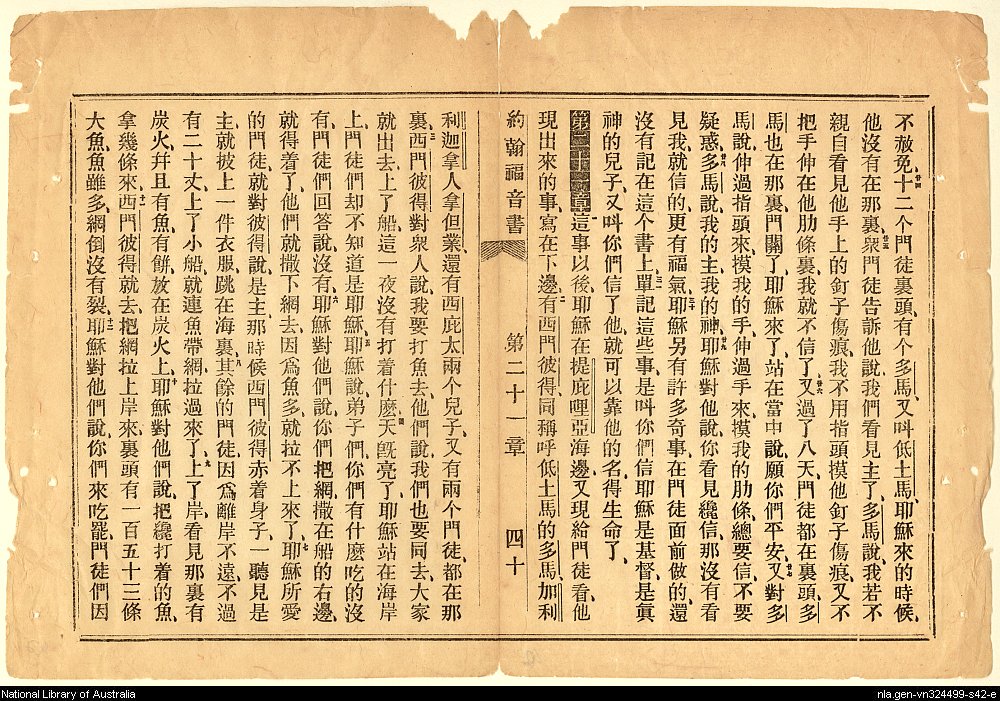 不赦免、廿四十二个門徒裏頭、有个多馬、又呌低土馬、耶穌來的時候、
他沒有在那裏、廿五衆門徒告訴他說、我們看見主了、多馬說、我若不
親自看見他手上的釘子傷痕、我不用指頭摸他釘子傷痕、又不
把手伸在他肋條裏、我就不信了、廿六又過了八天、門徒都在裏頭、多
馬也在那裏、門關了、耶穌來了、站在當中說、願你們平安、廿七又對多
馬說、伸過指頭來、摸我的手、伸過手來、摸我的肋條、總要信、不要
疑惑、廿八多馬說、我的主、我的神、廿九耶穌對他說、你看見纔信、那沒有看
見我、就信的、更有福氣、三十耶穌另有許多奇事、在門徒面前做的、還
沒有記在這个書上、三一單記這些事、是呌你們信耶穌是基督、是眞
神的兒子、又呌你們信了他、就可以靠他的名、得生命了、
第二十一章 這事以後、耶穌在提庇哩亞海邊、又現給門徒看、他
現出來的事、寫在下邊、二有西門彼得、同稱呼低土馬的多馬、加利
約翰福音書 第二十一章 四十
利迦拿人拿但業、還有西庇太兩个兒子、又有兩个門徒、都在那
裏、三西門彼得對衆人說、我要打魚去、他們說、我們也要同去、大家
就出去、上了船、這一夜沒有打着什麽、四天旣亮了、耶穌站在海岸
上、門徒們却不知道是耶穌、五耶穌說、弟子們、你們有什麽吃的沒
有、門徒們回答說、沒有、六耶穌對他們說、你們把網撒在船的右邊、
就得着了、他們就撒下網去、因爲魚多、就拉不上來了、七耶穌所愛
的門徒、就對彼得說、是主、那時候西門彼得赤着身子、一聽見是
主、就披上一件衣服、跳在海裏、八其餘的門徒、因爲離岸不遠、不過
有二十丈、上了小船、就連魚帶網拉過來了、九上了岸、看見那裏有
炭火、幷且有魚、有餅、放在炭火上、十耶穌對他們說、把纔打着的魚、
拿幾條來、十一西門彼得就去、把網拉上岸來、裏頭有一百五十三條
大魚、魚雖多、網倒沒有裂、十二耶穌對他們說、你們來吃罷、門徒們因
National Library of Australia
nla.gen-vn324499-s42-e